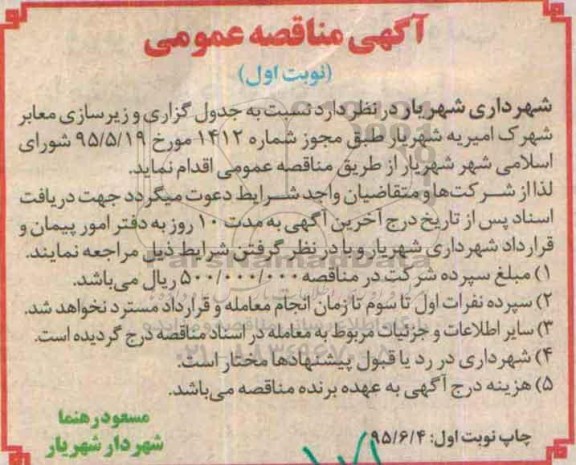 آگهی مناقصه عمومی
(نوبت اول)
شهرداری شهریار در نظر دارد نسبت به جدول گزاری و زیرسازی معابر
شهرک امیریه شهریار طبق مجوز شماره ۱۴۱۲ مورخ ۹۵/۵/۱۹ شورای
اسلامی شهر شهریار از طریق مناقصه عمومی اقدام نماید.
لذا از شرکت‌ها و متقاضیان واجد شرایط دعوت میگردد جهت دریافت
اسناد پس از تاریخ درج آخرین آگهی به مدت ۱۰ روز به دفتر امور پیمان و
قرارداد شهرداری شهریار و با در نظر گرفتن شرایط ذیل مراجعه نمایند.
۱) مبلغ سپرده شرکت در مناقصه ۵۰۰/۰۰۰/۰۰۰ ریال می‌باشد.
۲) سپرده نفرات اول تا سوم تا زمان انجام معامله و قرارداد مسترد نخواهد شد.
۳) سایر اطلاعات و جزئیات مربوط به معامله در اسناد مناقصه درج گردیده است.
۴) شهرداری در رد یا قبول پیشنهادها مختار است.
۵) هزینه درج آگهی به عهده برنده مناقصه می‌باشد.
چاپ نوبت اول: ۹۵/۶/۴
مسعود رهنما
شهردار شهریار